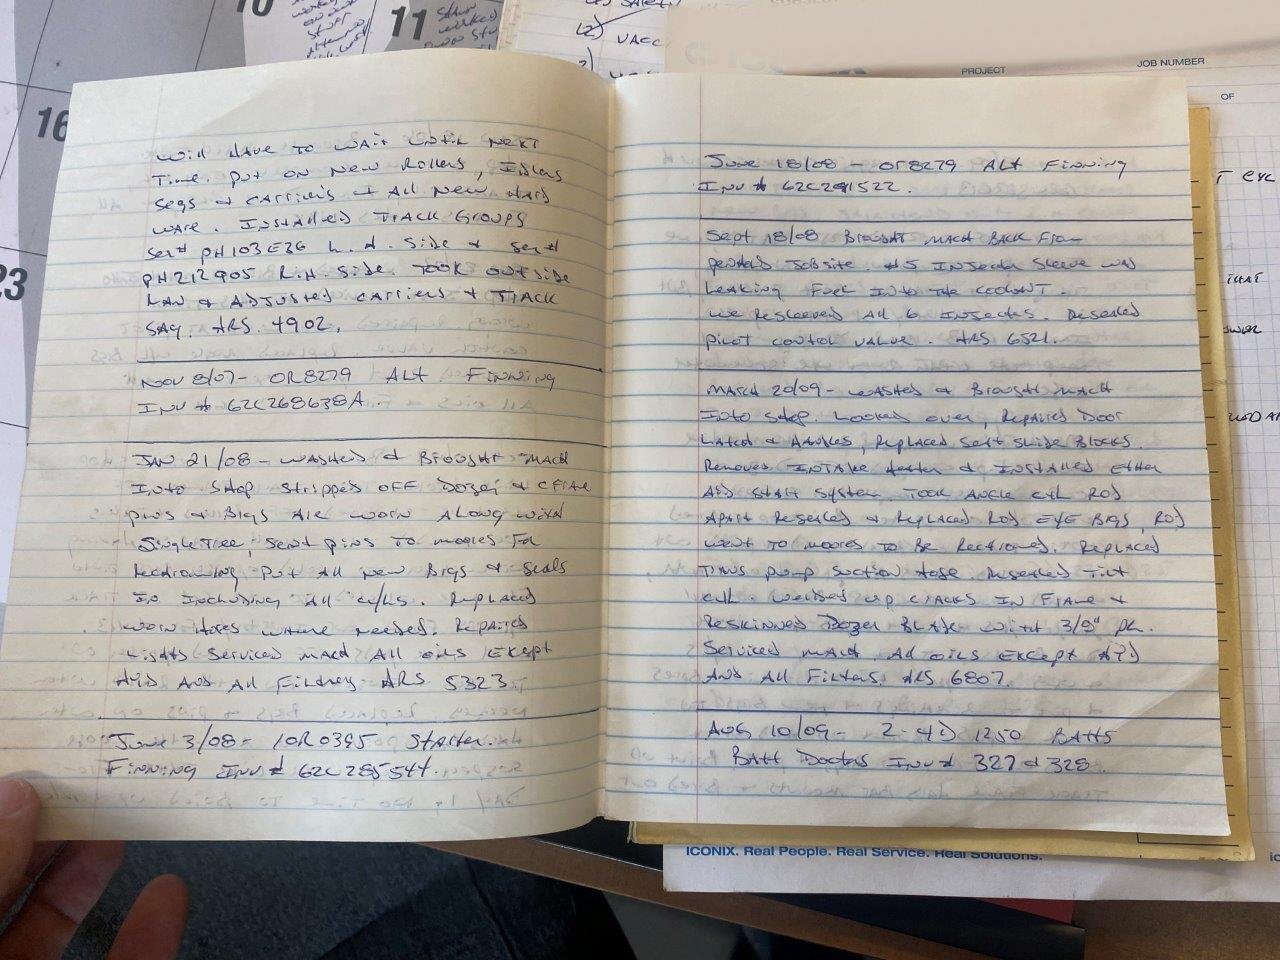 10
11
16
23
PROJECT
JOB NUMBER
OF
will HAVE TO WAIT UNTIL NEXT
TIME. PUT ON NEW ROLLERS, IDLERS
SEGS & CARRIERS & All NEW HARD
WARE. INSTALLED TRACK GROUPS
SER# PH103E26 L.H. SIDE & SER#
PH212905 R.H SIDE. TOOK OUTSIDE
& ADJUSTED CARRIERS & TRACK
SAG. HRS. 4902.
NOV 8/07- OR8279 ALT FINNING
INV # 62C268638A
JAN 21/08 - WASHED & BROUGHT MACH
INTO SHOP STRIPPED OFF DOZER & CFRAME
PINS & BRGS ARE WORN ALONG WITH
SINGLETREE, SENT PINS TO MOORES FOR
RECHROMING PUT ALL NEW BRGS & SEALS
IN INCLUDING ALL CYLS. REPLACED
WORN HOSES WHERE NEEDED. REPAIRED
LIGHTS SERVICED MACH ALL OILS EXCEPT
HYD AND ALL FILTERS. HRS 5323.
JUNE 3/08 - 10R0395 STARTER.
FINNING INV # 62C285544.
JUNE 18/08 - OR8279 ALT FINNING
INV # 62C291522.
SEPT 18/08 BROUGHT MACH BACK FROM
JOBSITE. #5 INJECTOR SLEEVE WAS
LEAKING FUEL INTO THE COOLANT.
WE RESLEEVED ALL 6 INJECTORS. RESEALED
PILOT CONTROL VALVE. HRS 6521.
MARCH 20/09 - WASHED & BROUGHT MACH
INTO SHOP. LOOKED OVER, REPAIRED DOOR
LATCH & HANDLES, REPLACED SEAT SLIDE BLOCKS.
REMOVED INTAKE HEATER & INSTALLED ETHER
AID START SYSTEM. TOOK ANGLE CYL ROD
APART RESEALED & REPLACED ROD EYE BRGS, ROD
WENT TO MOORES TO BE RECHROMED. REPLACED
TRANS PUMP SUCTION HOSE. RESEALED TILT
CYL. WELDED UP CRACKS IN FRAME &
RESKINNED DOZER BLADE WITH 3/8" PL.
SERVICED MACH. ALL OILS EXCEPT HYD
AND ALL FILTERS. HRS 6807.
AUG 10/09 - 2-4D 1250 BATTS
BATT DOCTORS INV # 327 & 328.
ICONIX. Real People. Real Service. Real Solutions.